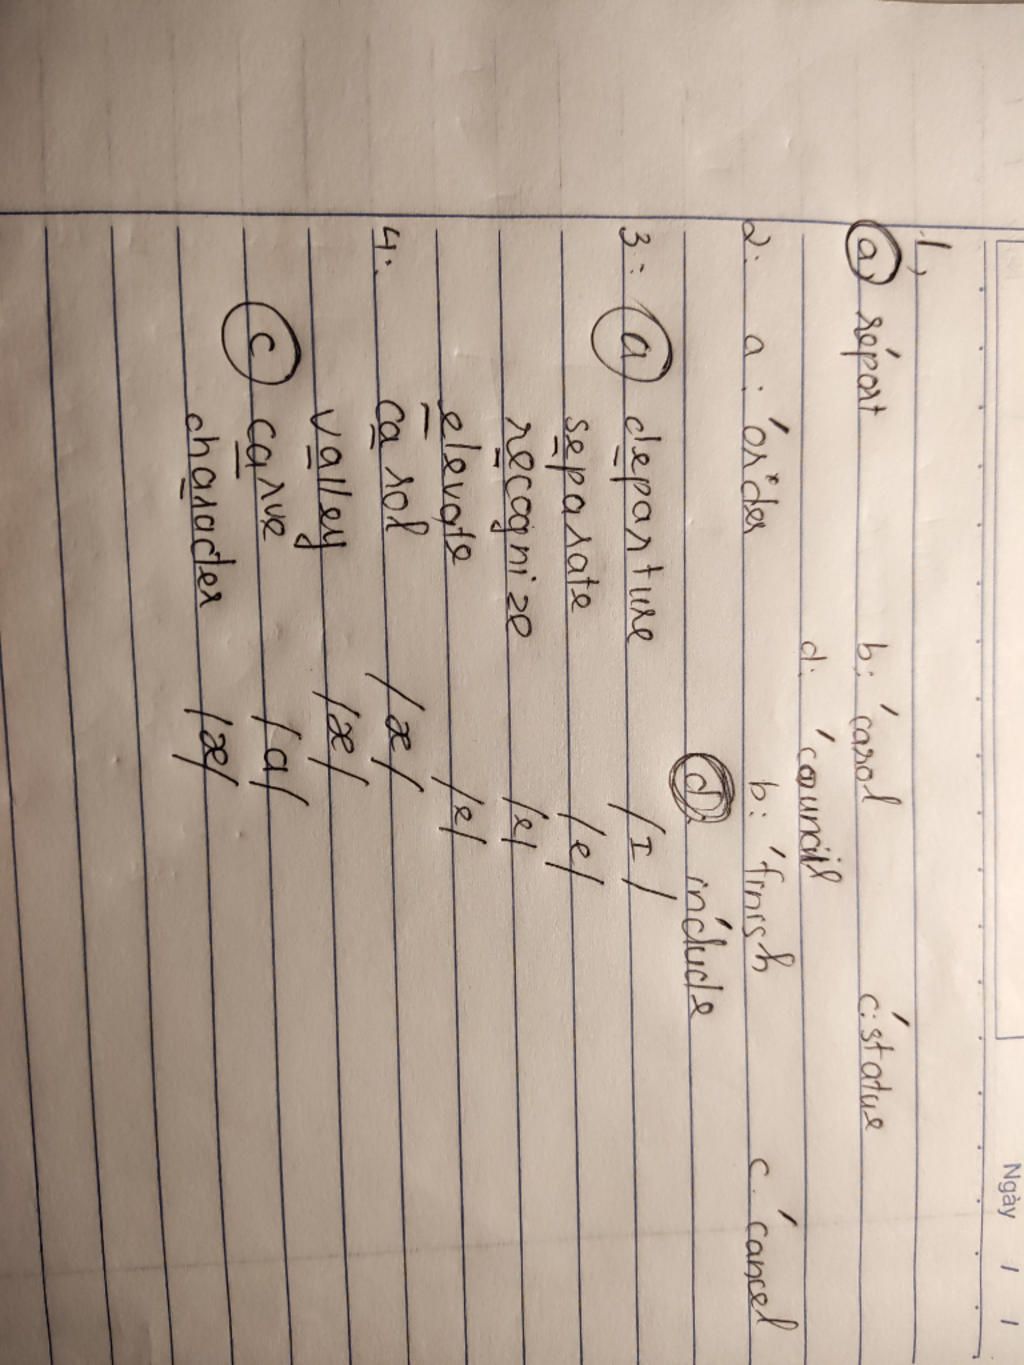 Ngày / /
1,
a, re'port b: 'carol c: 'statue
d: 'council
2: a: 'order b: 'finish c. 'cancel
d. in'clude
3: a departure /ɪ/
separate /e/
recognize /e/
elevate /e/
4: carol /æ/
valley /æ/
c carve /a/
character /æ/